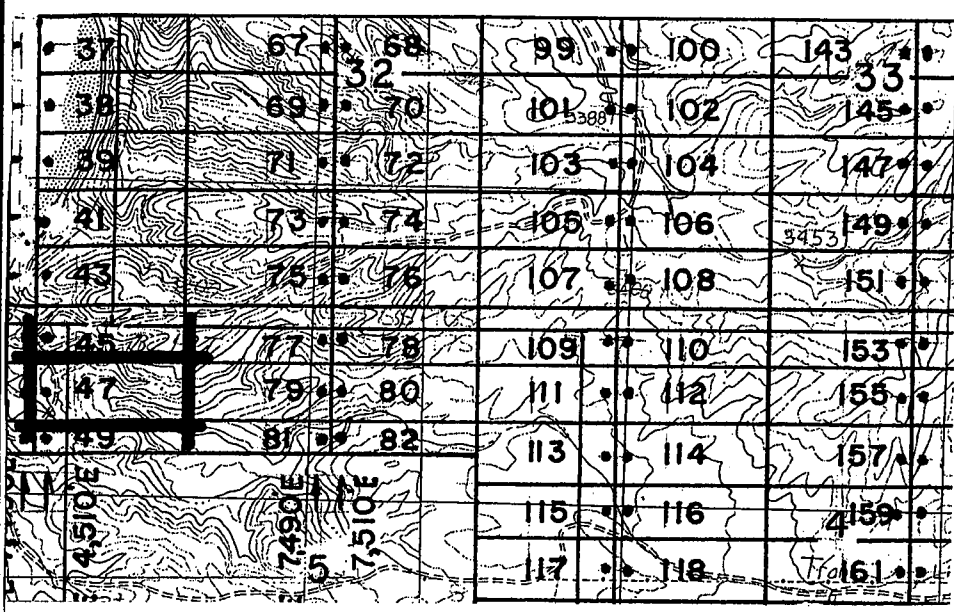 37 67 68 99 100 143
32 33
38 69 70 101 5388 102 145
39 71 72 103 104 147
41 73 74 105 106 149
3453
43 75 76 107 108 151
45 77 78 109 110 153
47 79 80 111 112 155
49 81 82 113 114 157
4,510'E 7,490'E 7,510'E
115 116 4 159
5 117 118 161